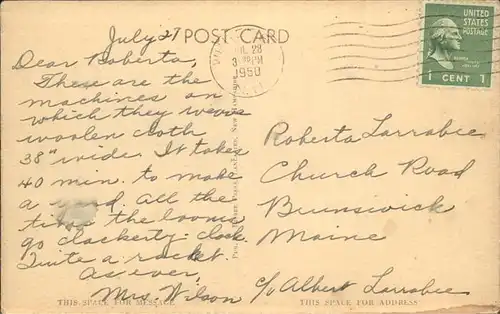 July 27
POST CARD
28
3 PM
1950
UNITED STATES
POSTAGE
1 CENT 1
Dear Roberta,
These are the
machines on
which they weave
woolen cloth
38" wide. It takes
40 min. to make
a yard. All the
time the looms
go clackerty-clack.
Quite a racket.
As ever,
Mrs Wilson
THIS SPACE FOR MESSAGE
Roberta Larrabee
Church Road
Brunswick
Maine
c/o Albert Larrabee
THIS SPACE FOR ADDRESS